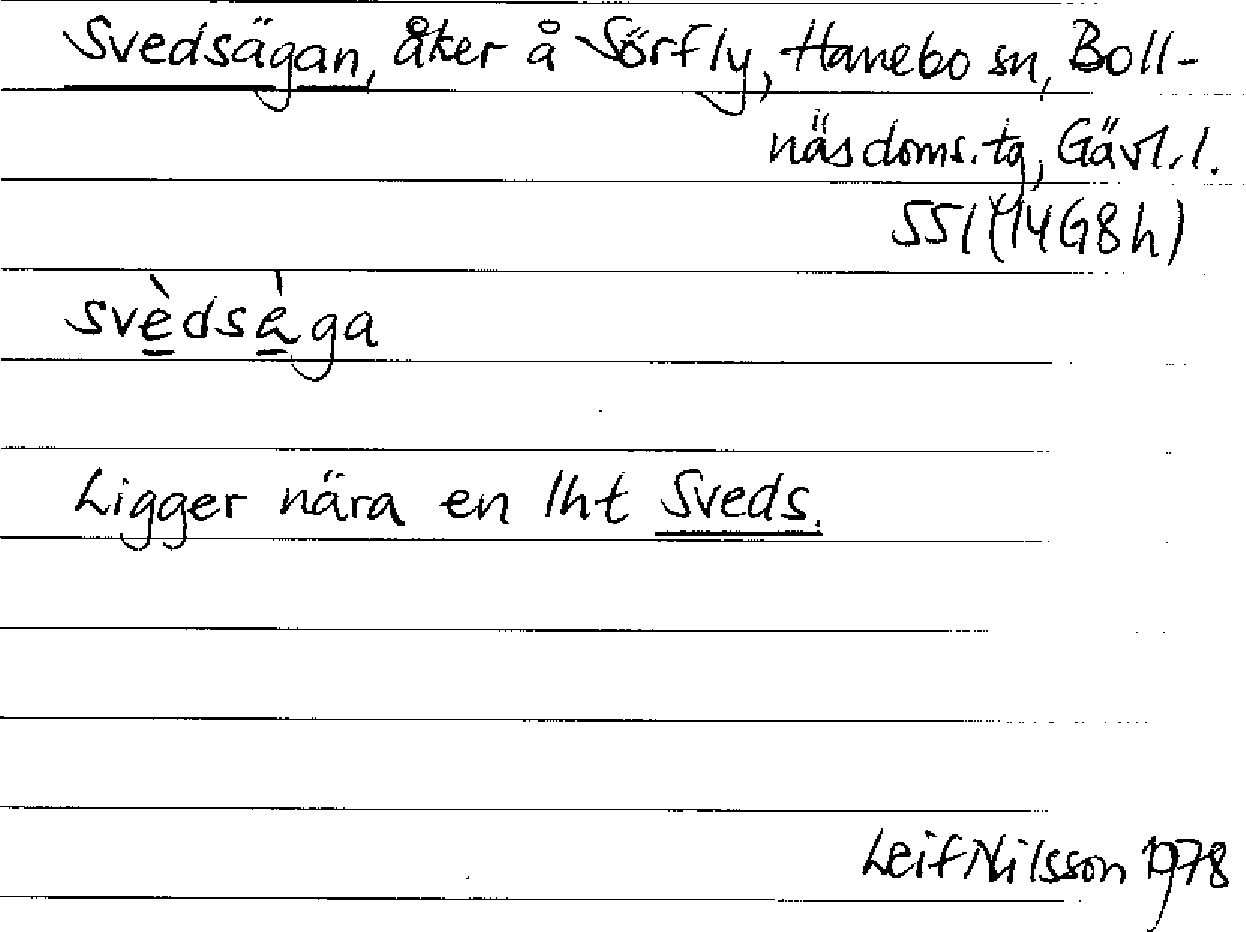 Svedsägan, åker å Sörfly, Hanebo sn, Boll-
näs doms.tg, Gävl.l.
SSI (14G8h)
svè̱dsè̱ga
Ligger nära en lht Sveds.
Leif Nilsson 1978